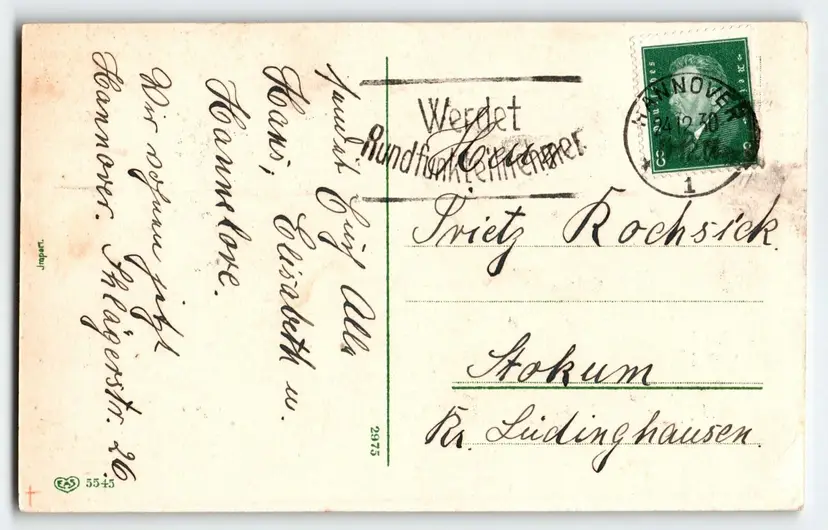 Werdet
Rundfunkteilnehmer
HANNOVER
12.30
1
Deutsches Reich
8
8
Herrn
Frietz Rochsick.
Stokum
Kr. Lüdinghausen.
Euch Alle
Hans,
Elisabeth u.
Hannelore.
Wir wohnen jetzt
Hannover. Schlägerstr. 26.
Import.
2975
EAS 5545